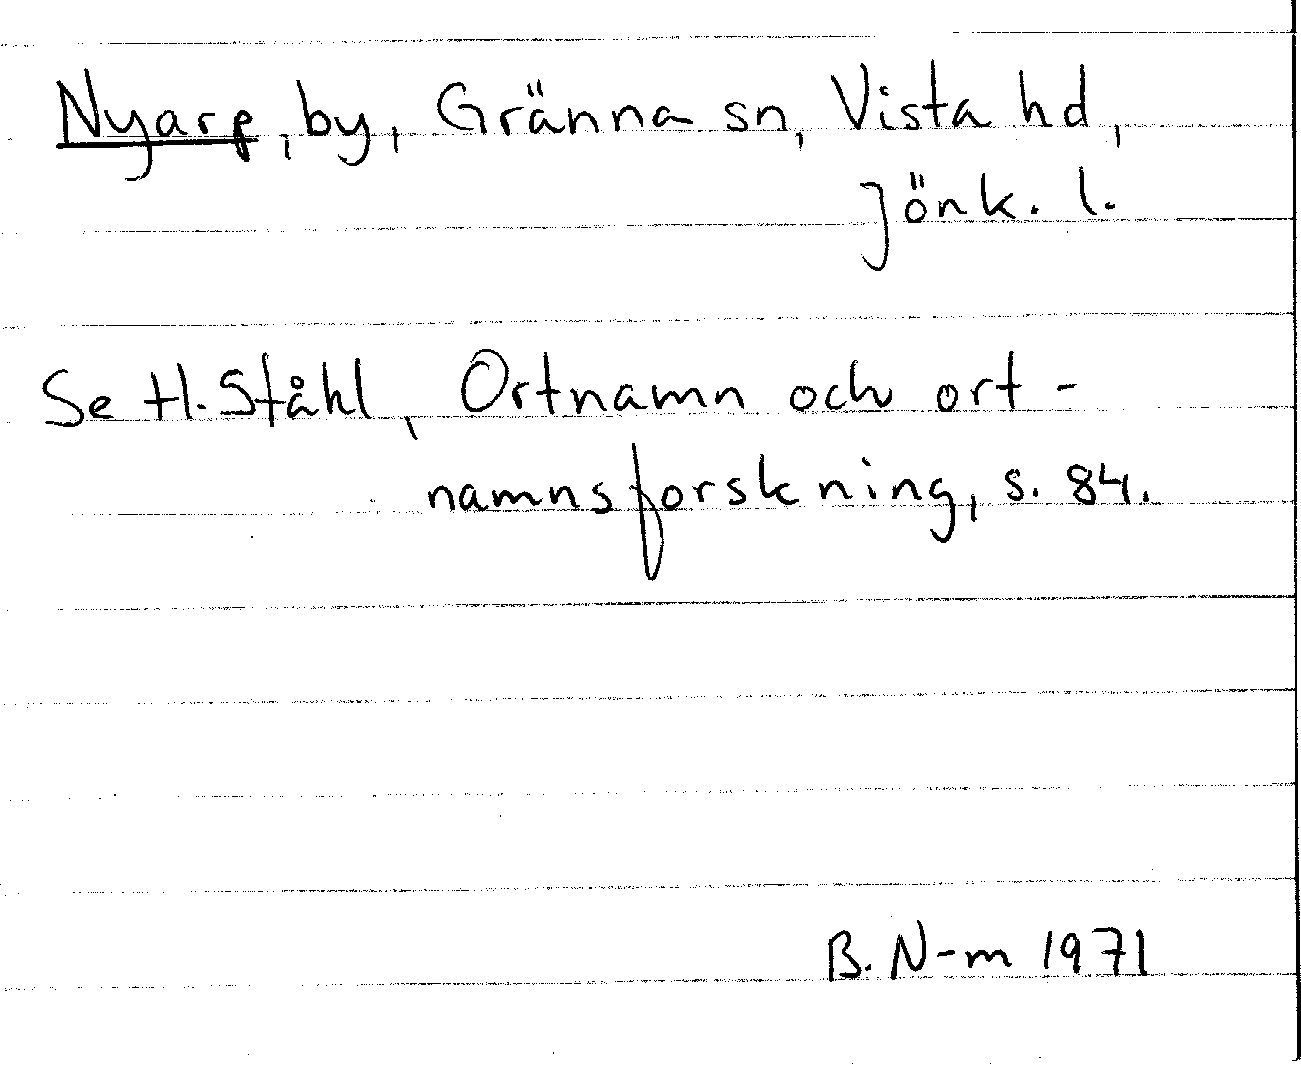 Nyarp, by, Gränna sn, Vista hd,
Jönk. l.
Se H. Ståhl, Ortnamn och ort-
namnsforskning, s. 84.
B. N-m 1971